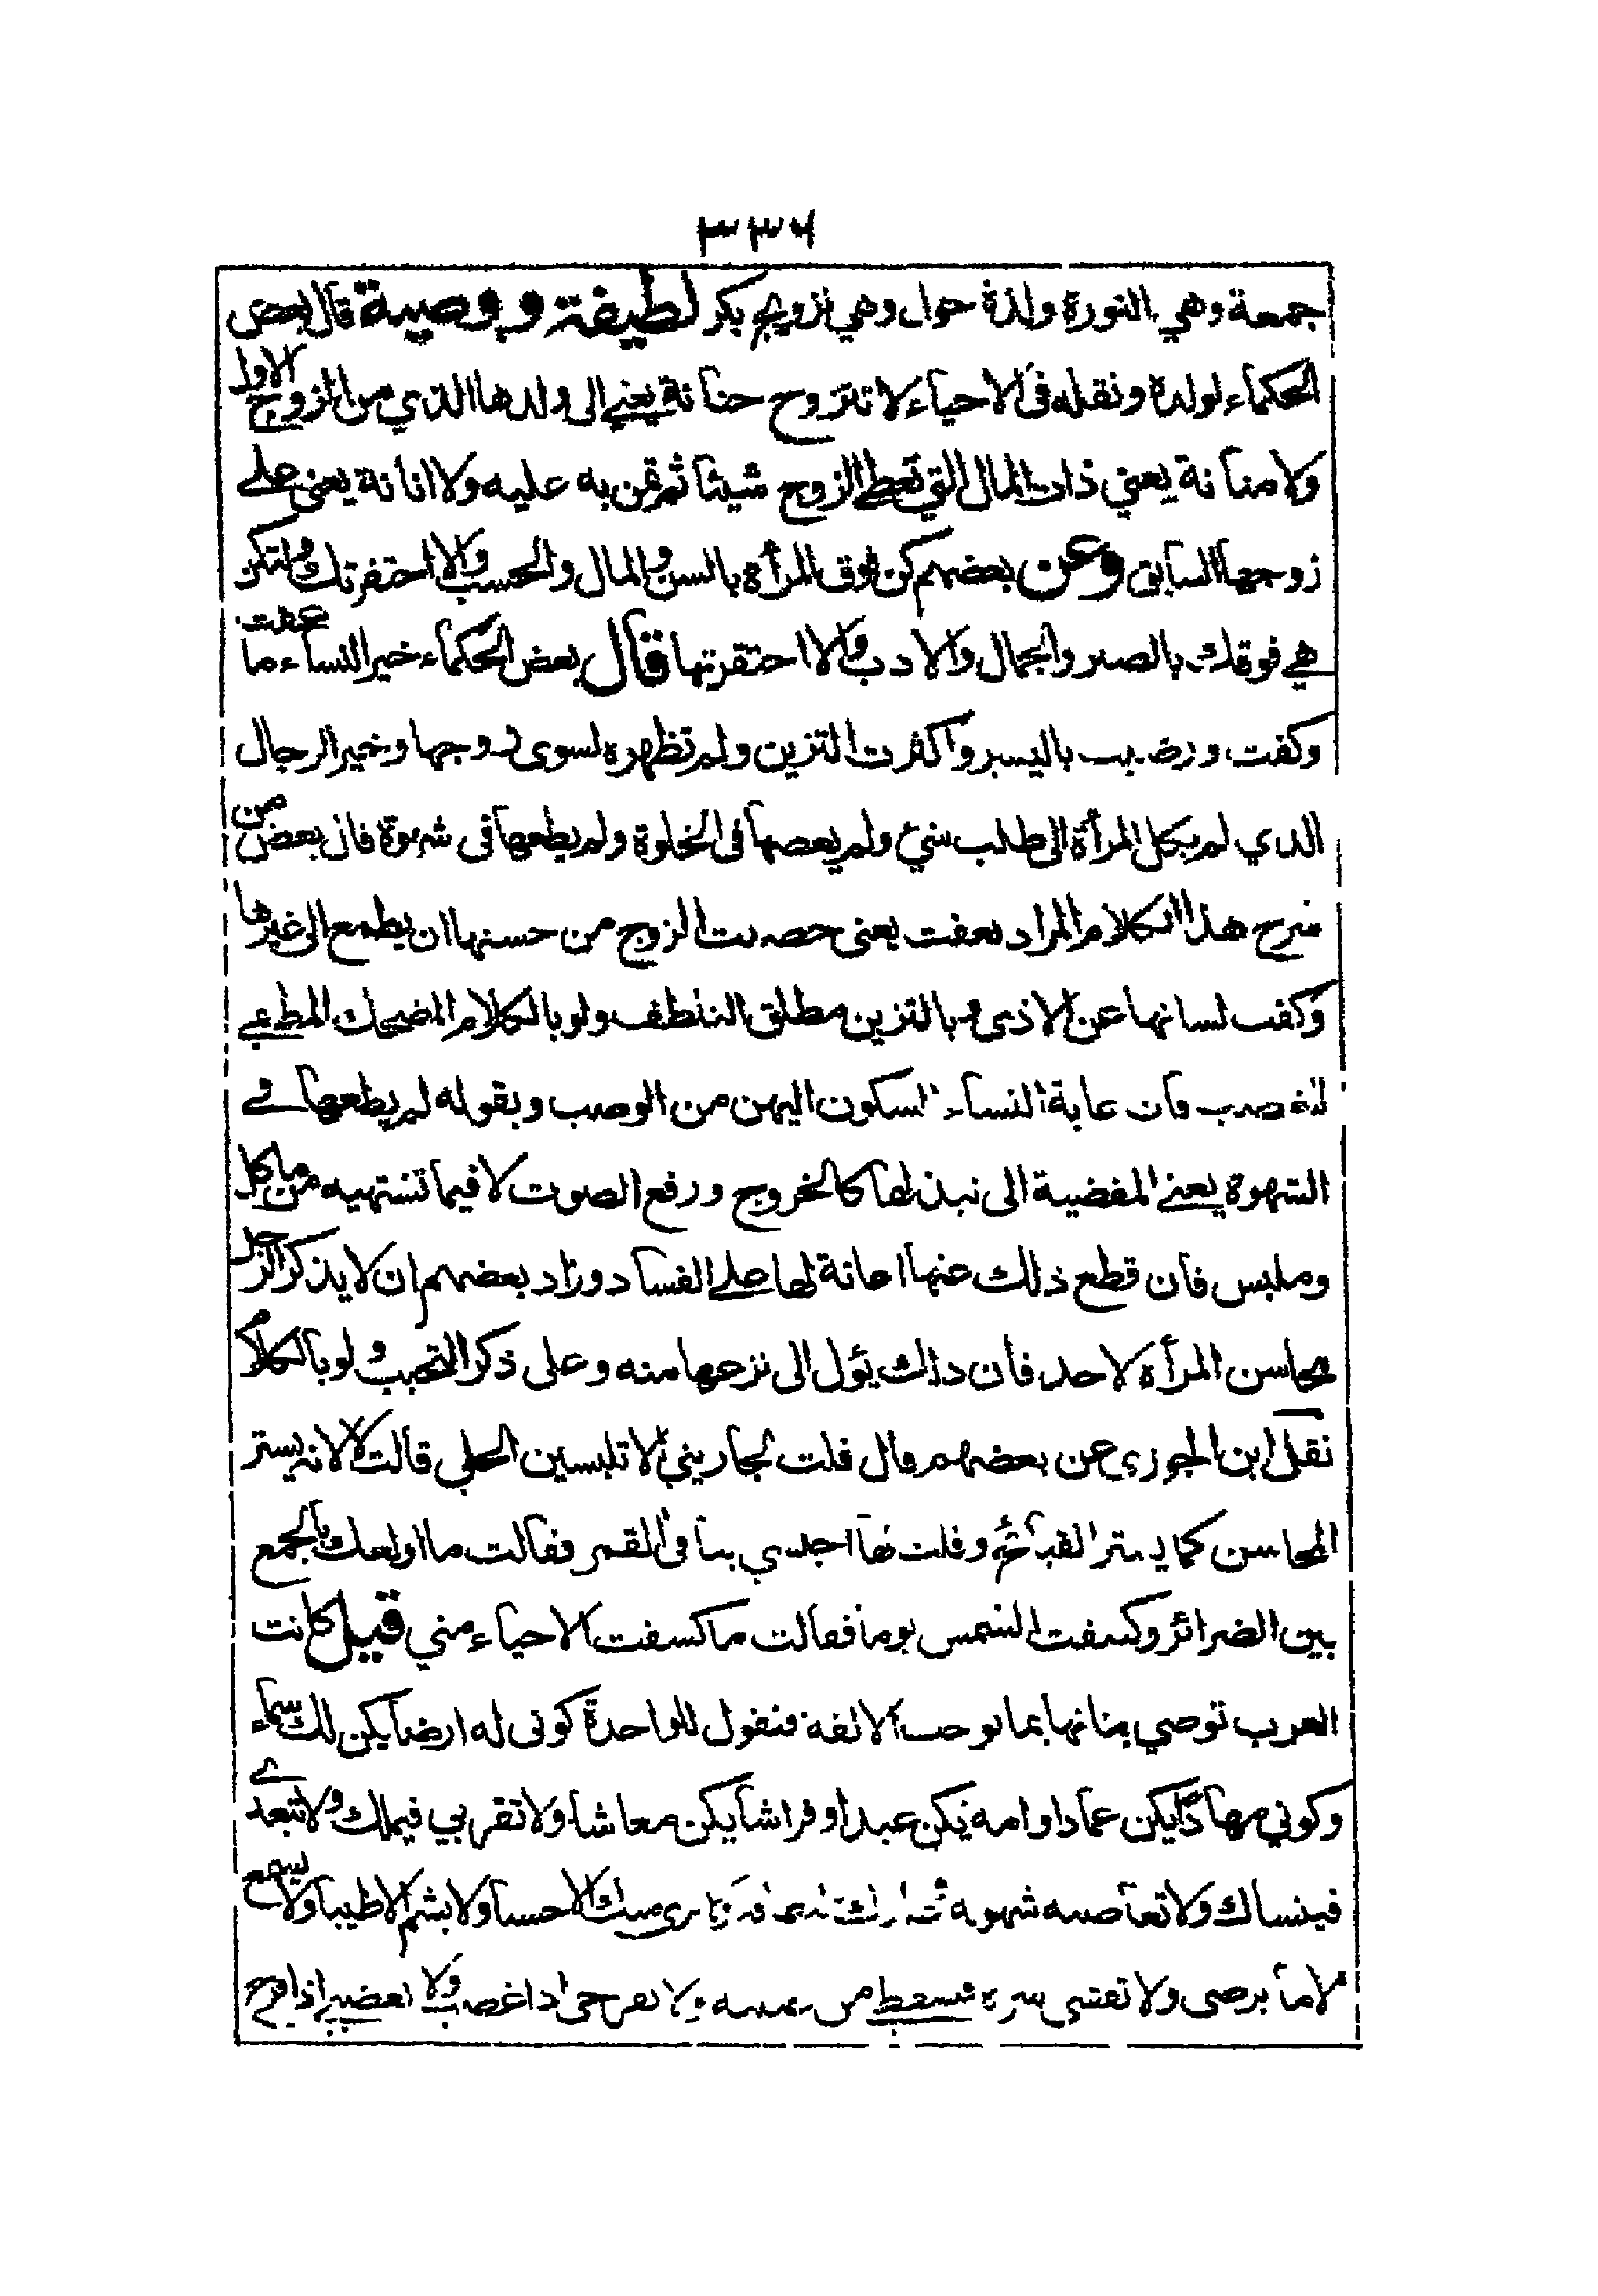 ٣٣٦
جمعة وهي النورة ولذة حول وهي تزويج بكر لطيفة ووصية قال بعض
الحكماء لولده ونقله فى الاحياء لا تتزوج حنانة يعنى الى ولدها الذي من الزوج الاول
ولا منانة يعني ذات المال التي تعطى الزوج شيئا ثم تمن به عليه ولا انانة يعنى على
زوجها السابق وعن بعضهم كن فوق المرأة بالسن والمال والحسب والا احتقرتك ولتكن
هي فوقك بالصبر والجمال والادب والا احتقرتها قال بعض الحكماء خير النساء ما عفت
وكفت ورضيت باليسير واكثرت التزين ولم تظهره لسوى زوجها وخير الرجال
الذي لم يكل المرأة الى طلب شئ ولم يعصها فى الخلوة ولم يطعها فى شهوة قال بعض من
شرح هذا الكلام المراد بعفت يعنى حصنت الزوج من حسنها ان يطمع الى غيرها
وكفت لسانها عن الاذى وبالتزين مطلق التلطف ولو بالكلام المضحك المطفى
للغضب فان غاية النساء السكون اليهن من الوصب وبقوله لم يطعها فى
الشهوة يعنى المفضية الى نبذلها كالخروج ورفع الصوت لا فيما تشتهيه من مأكل
وملبس فان قطع ذلك عنها اعانة لها على الفساد وزاد بعضهم ان لا يذكر الرجل
محاسن المرأة لاحد فان ذلك يؤل الى نزعها منه وعلى ذكر التحبب ولو بالكلام
نقل ابن الجوزي عن بعضهم قال قلت لجاريتي الا تلبسين الحلي قالت لا لانه يستر
المحاسن كما يستر القبائح وقلت لها اجلسي بنا في القمر فقالت ما اولعك بالجمع
بين الضرائر وكسفت الشمس يوما فقالت ما كسفت الا حياء مني قيل كانت
العرب توصي بناتها بما يوجب الالفة فنقول للواحدة كونى له ارضا يكن لك سماء
وكوني مهادا يكن عمادا وامة يكن عبدا وفراشا يكن معاشا ولا تقربي فيملك ولا تبعدي
فينساك ولا تعاصيه شهوة منك الا حسنا ولا يشم الا طيبا ولا يسمع
الا ما يرضى ولا تفشى سره فتسقطى من عينيه ولا تفرحى اذا غضب ولا تغضبى اذا فرح